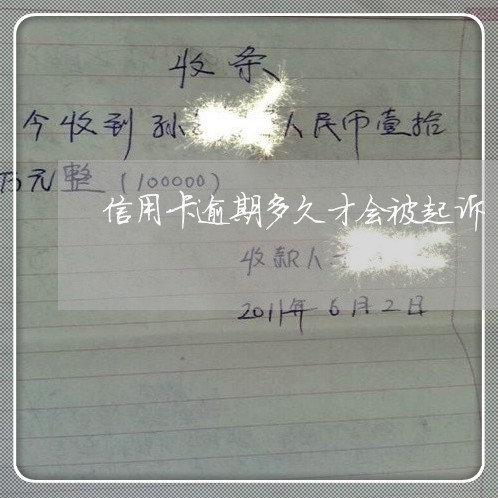 收条
今收到孙 人民币壹拾
万元整（100000）
信用卡逾期多久才会被起诉
收款人
2011年6月2日